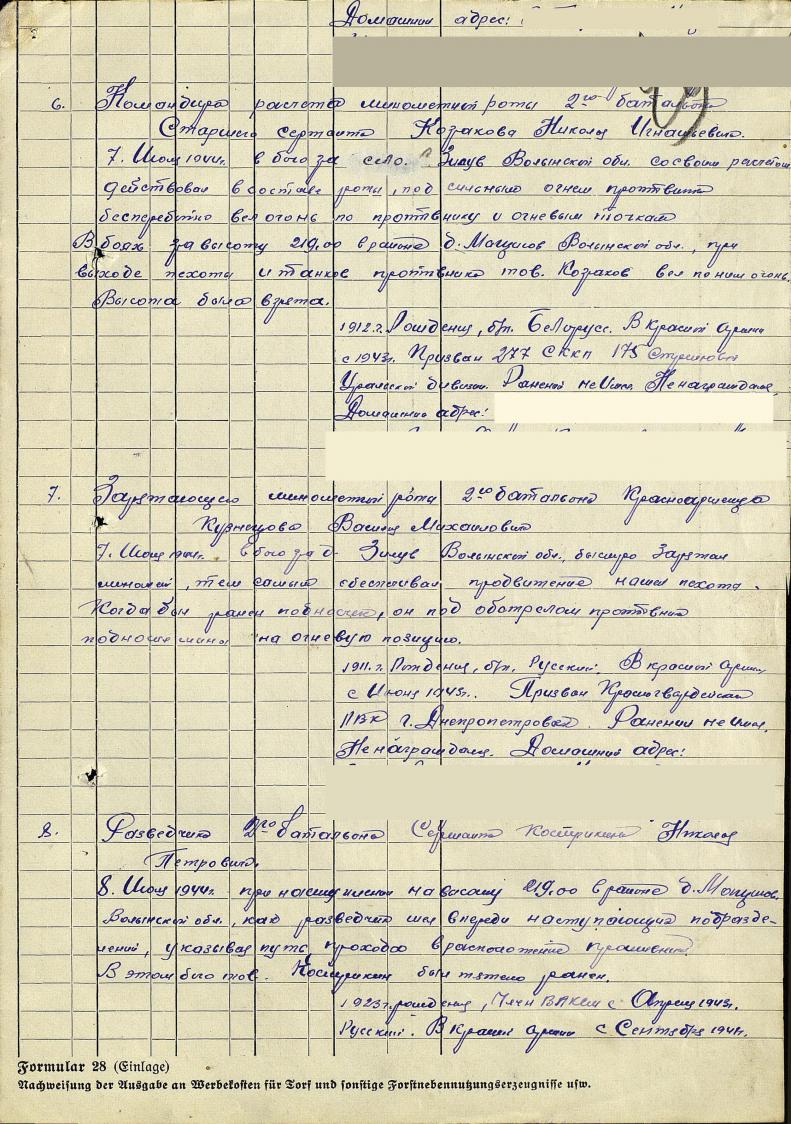 Домашний адрес:
6. Командира расчета минометной роты 2го батальона
Старшего сержанта Козракова Николая Игнатьевича.
7. Июля 1944г. в бою за село. Зилув Волынской обл. со своим расчетом
действовал в составе роты, под сильным огнем противника
бесперебойно вел огонь по противнику и огневым точкам
В боях за высоту 219,00 в районе д. Мацилов Волынской обл., при
выходе пехоты и танков противника тов. Козраков вел по ним огонь.
Высота была взята.
1912.г. Рождения, б/п. Белорусс. В красной армии
с 1943г. Призван 277 С ККП 175 Стрелковой
Уральской дивизии. Ранений не имел. Не награждался.
Домашний адрес:
7. Заряжающего минометной роты 2го батальона Красноармейца
Кузнецова Василия Михайловича
7. Июля 1944г. в бою за д. Зилув Волынской обл., быстро заряжал
миномет, тем самым обеспечивал продвижение нашей пехоты.
Когда был ранен подносчик, он под обстрелом противника
подносил мины на огневую позицию.
1911.г. Рождения, б/п. Русский. В красной армии
с Июня 1943г.. Призван Красногвардейским
РВК г. Днепропетровска. Ранений не имел.
Не награждался. Домашний адрес:
8. Разведчика 2го батальона Сержанта Кострикина Николая
Петровича.
8. Июля 1944г. при наступлении на высоту 219.00 в районе д. Мацилов.
Волынской обл., как разведчик шел впереди наступающих подразде-
лений, указывая путь прохода в расположение противника.
В этом бою тов. Кострикин был тяжело ранен.
1923г. рождения, Член ВЛКСМ с Апреля 1943г.
Русский. В красной армии с Сентября 1941г.
Formular 28 (Einlage)
Nachweisung der Ausgabe an Werbekosten für Torf und sonstige Forstnebennutzungserzeugnisse usw.